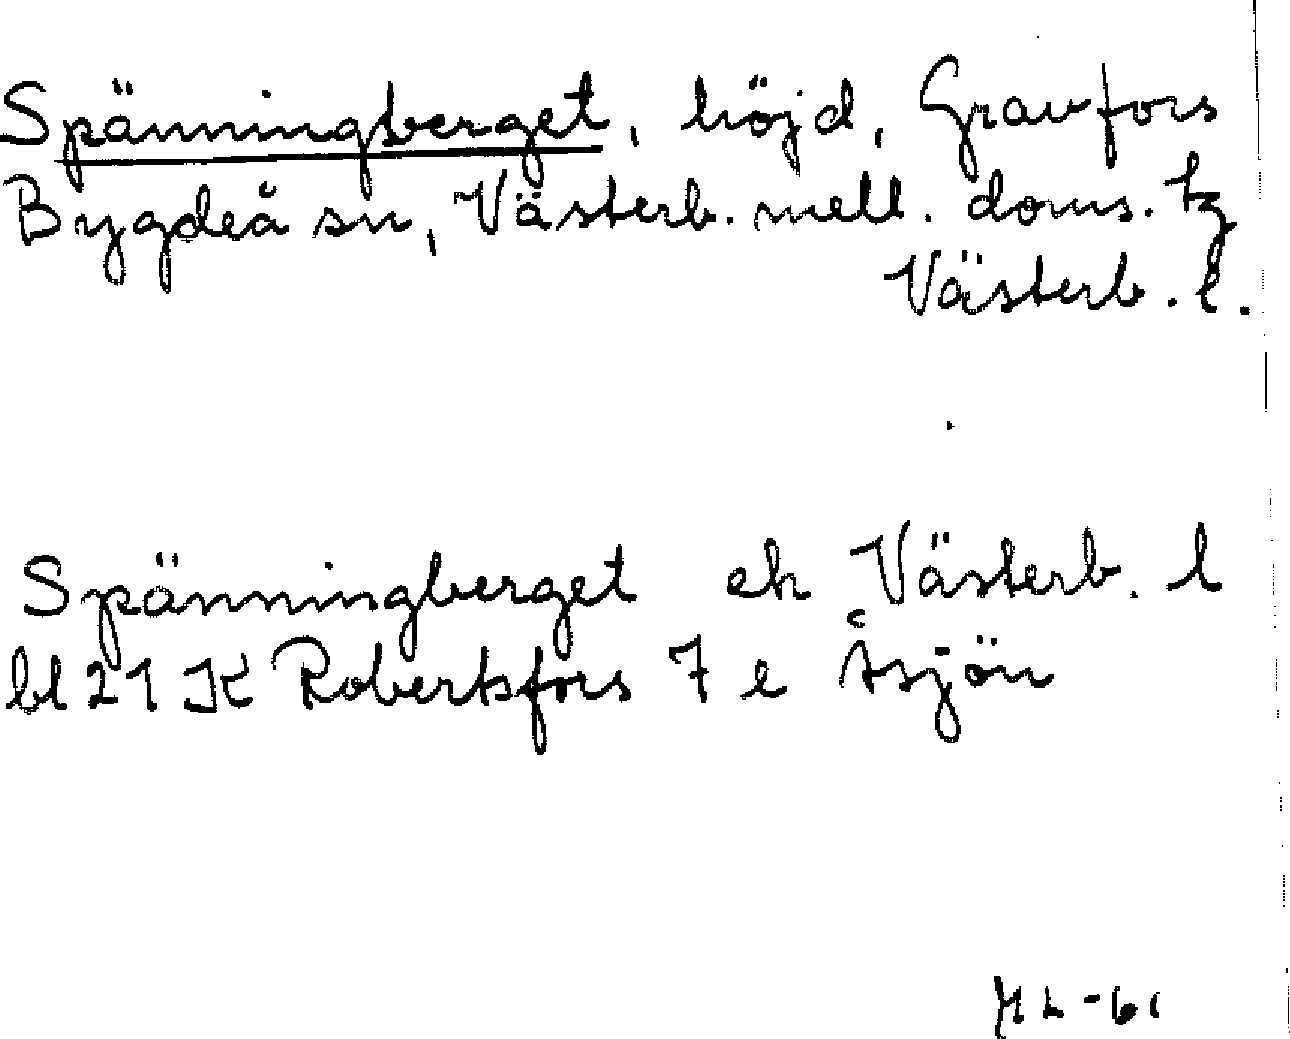 Spänningberget, höjd, Granfors
Bygdeå sn, Västerb. mell. doms. tg
Västerb. l.
Spänningberget ek Västerb. l
bl 21 K Robertsfors 7 e Åsjön
ML-61